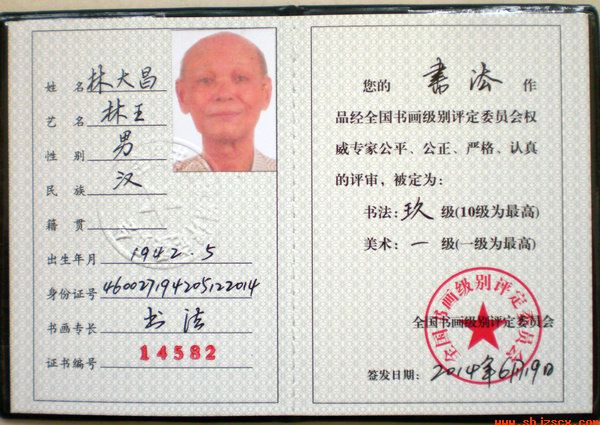 姓名 林大昌
艺名 林王
性别 男
民族 汉
籍贯
出生年月 1942.5
身份证号 460027194205122014
书画专长 书法
证书编号 14582
您的 书法 作
品经全国书画级别评定委员会权
威专家公平、公正、严格、认真
的评审，被定为：
书法：玖 级(10级为最高)
美术：一 级(一级为最高)
全国书画级别评定委员会
全国书画级别评定委员会
签发日期：2014年6月19日
www.shjzscx.com